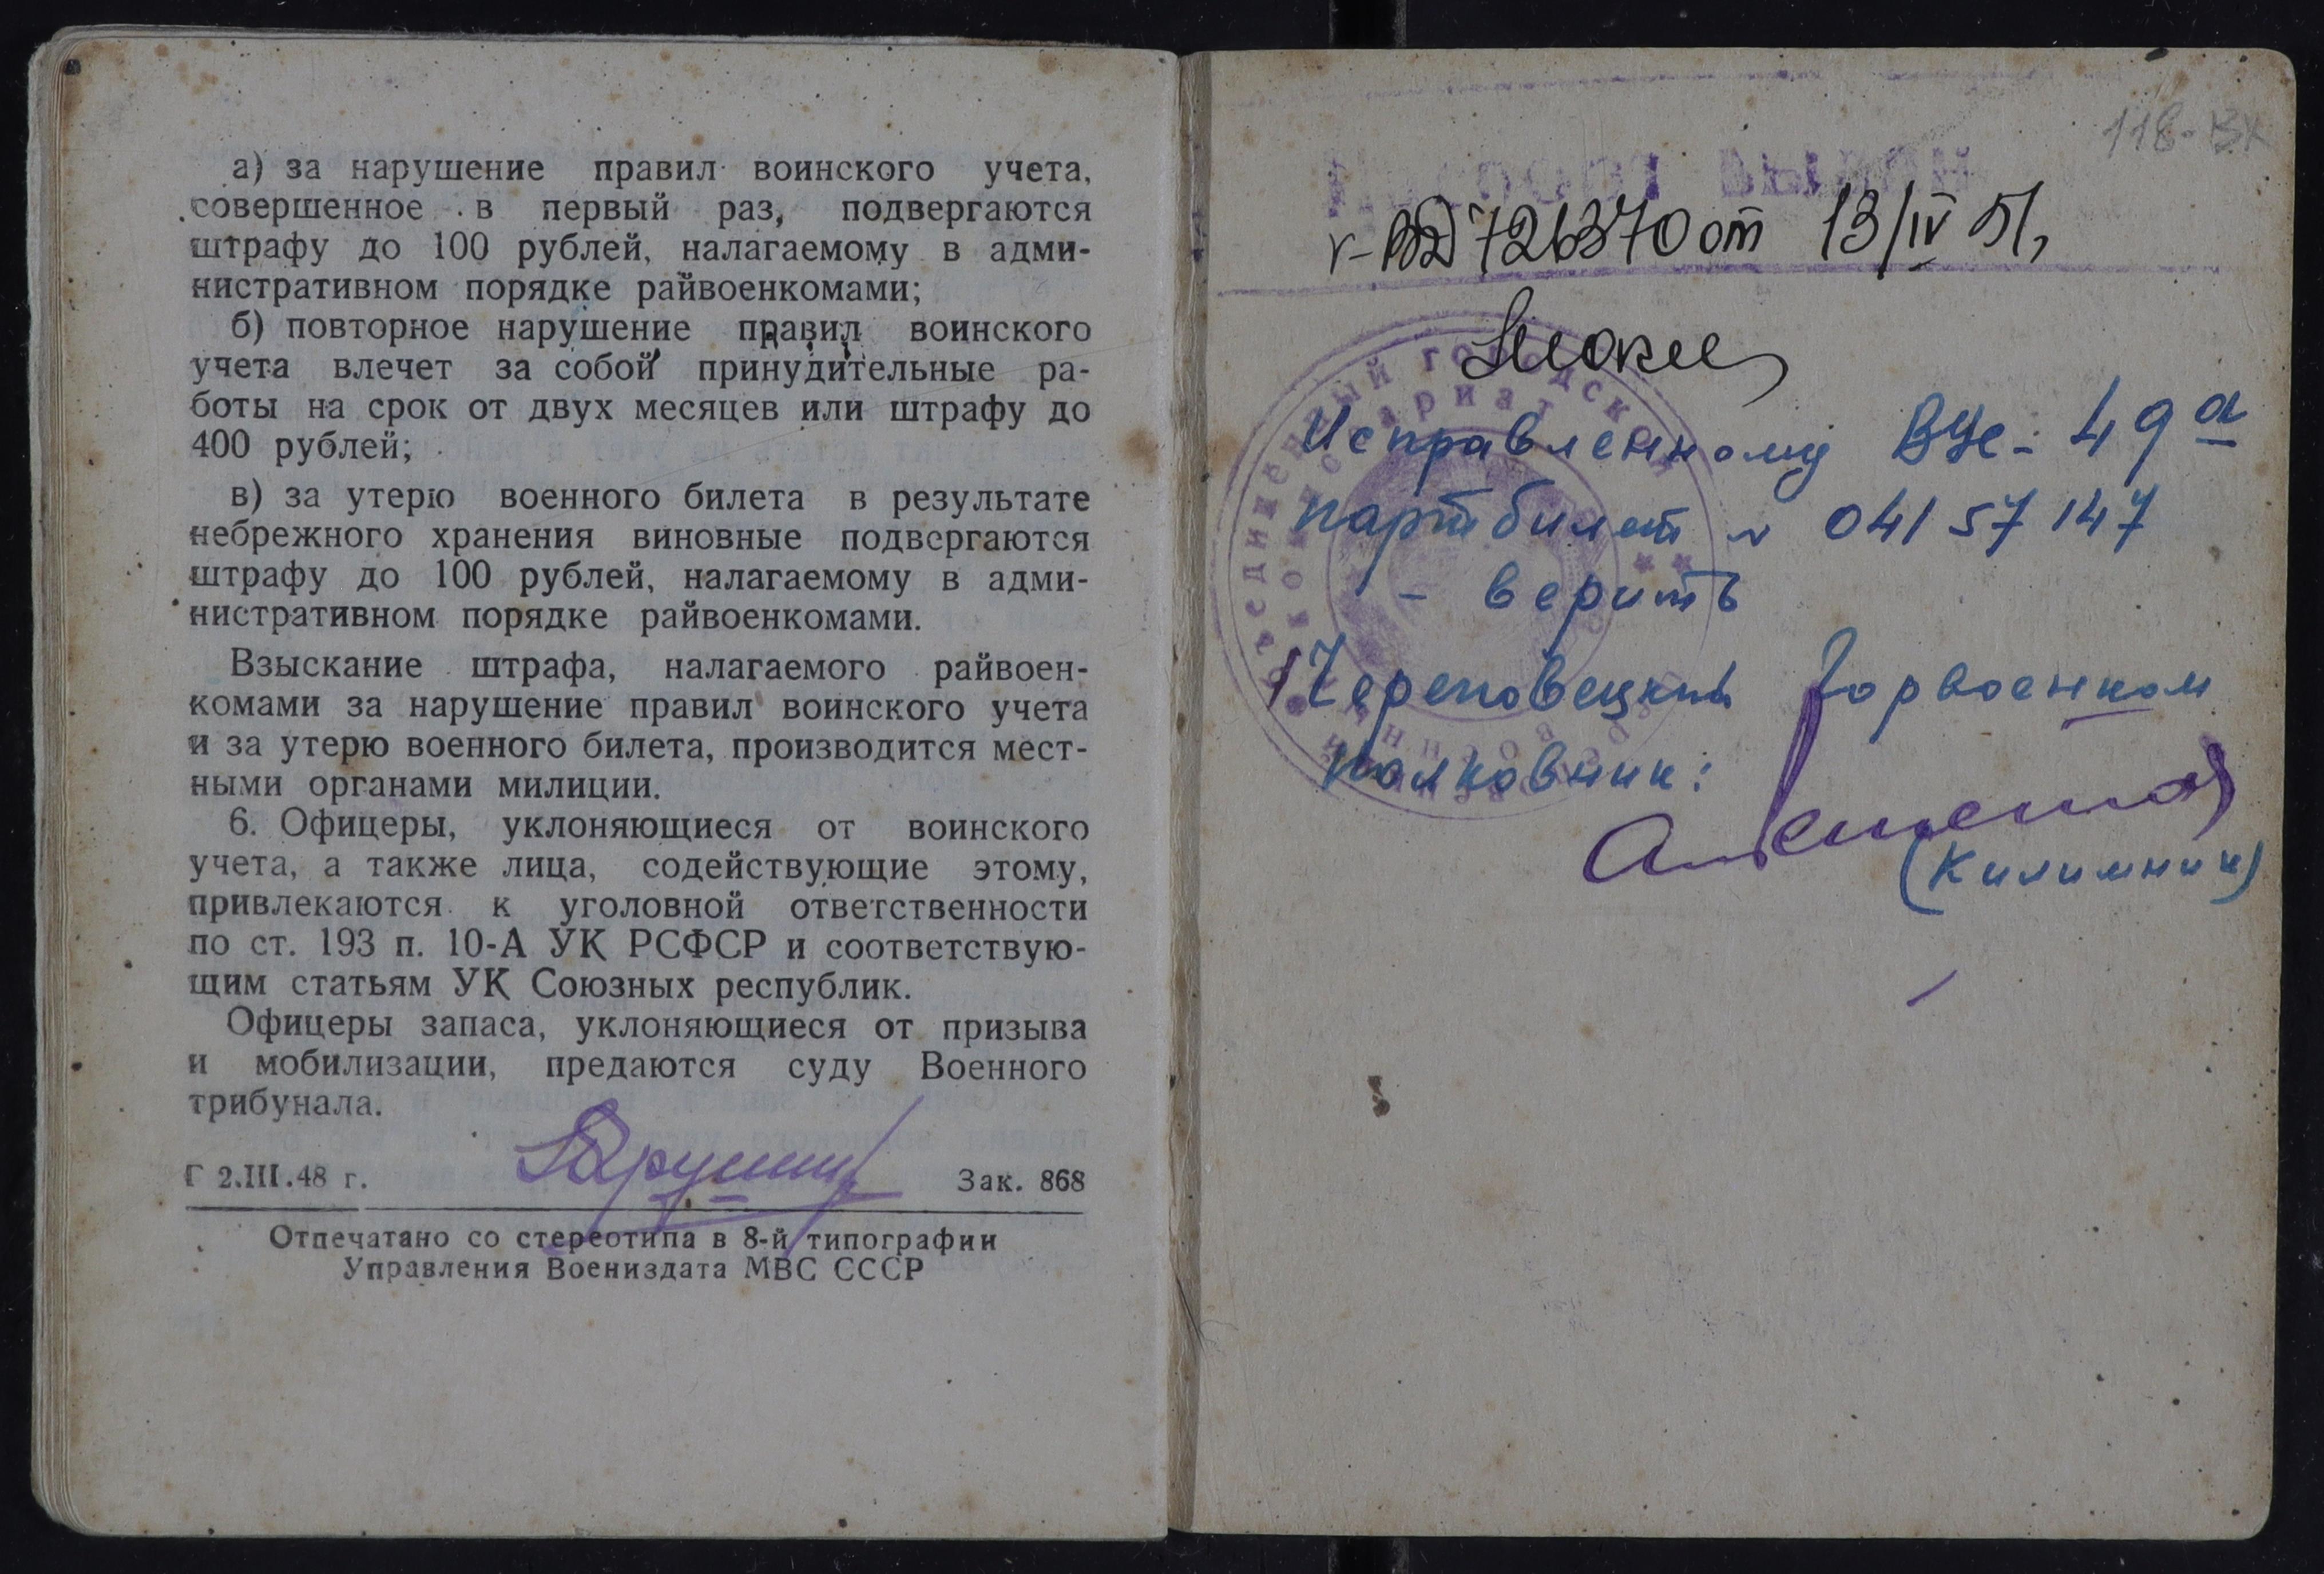 а) за нарушение правил воинского учета,
совершенное в первый раз, подвергаются
штрафу до 100 рублей, налагаемому в адми-
нистративном порядке райвоенкомами;
б) повторное нарушение правил воинского
учета влечет за собой принудительные ра-
боты на срок от двух месяцев или штрафу до
400 рублей;
в) за утерю военного билета в результате
небрежного хранения виновные подвергаются
штрафу до 100 рублей, налагаемому в адми-
нистративном порядке райвоенкомами.
Взыскание штрафа, налагаемого райвоен-
комами за нарушение правил воинского учета
и за утерю военного билета, производится мест-
ными органами милиции.
6. Офицеры, уклоняющиеся от воинского
учета, а также лица, содействующие этому,
привлекаются к уголовной ответственности
по ст. 193 п. 10-А УК РСФСР и соответствую-
щим статьям УК Союзных республик.
Офицеры запаса, уклоняющиеся от призыва
и мобилизации, предаются суду Военного
трибунала.
Г 2.III.48 г. Зак. 868
Отпечатано со стереотипа в 8-й типографии
Управления Воениздата МВС СССР
118-вх
Паспорт выдан
726370 от 13/IV 51,
Исправленному ВУС - 49а
партбилет № 04157147
- верить
Череповецкий Горвоенком
Полковник:
(Килимник)